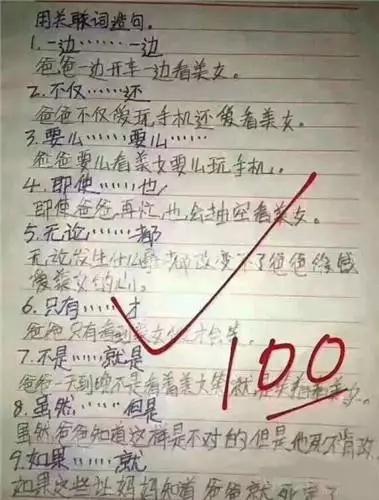 用关联词造句。
1.一边……一边
爸爸一边开车一边看美女。
2.不仅……还
爸爸不仅爱玩手机还爱看美女。
3.要么……要么……
爸爸要么看美女要么玩手机。
4.即使……也
即使爸爸再忙,也会抽空看美女。
5.无论……都
无论发生什么 都改变不了爸爸
爱美女的心。
6.只有……才
爸爸只有看到美女 才会笑。
7.不是……就是
爸爸一天到晚不是看着美女笑就是
8.虽然……但是
虽然爸爸知道这样是不对的,但是他死不肯改。
9.如果……就
如果这些让妈妈知道,爸爸就死定了
100